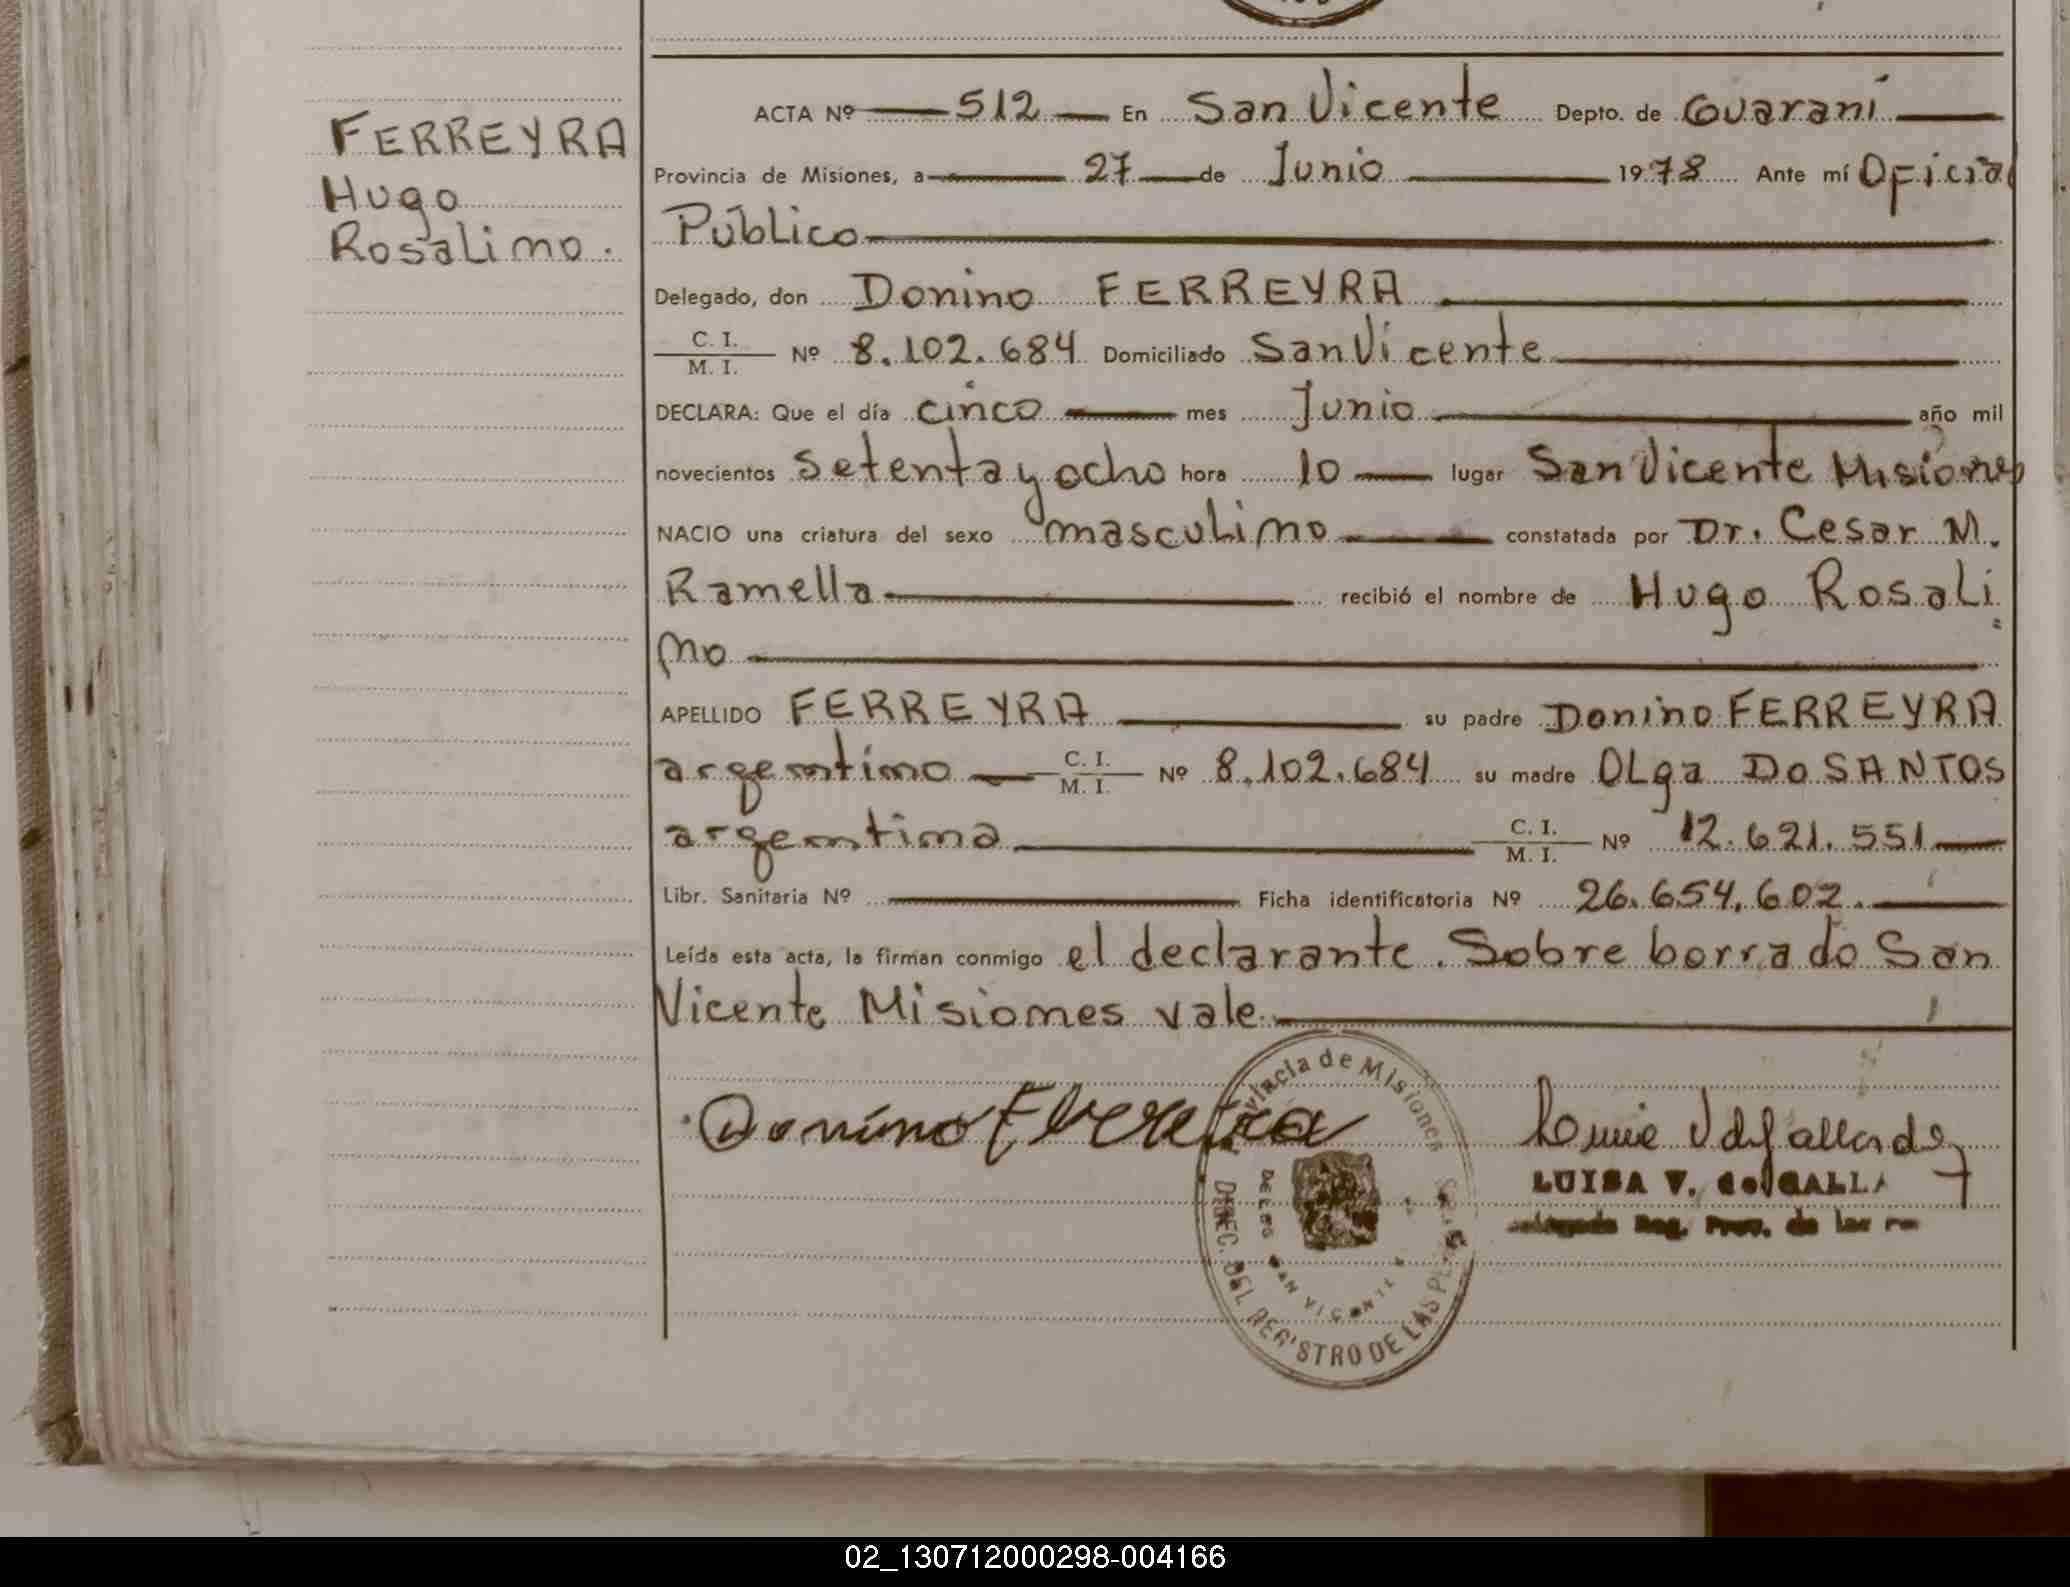 FERREYRA
Hugo
Rosalino.
ACTA Nº 512 En San Vicente Depto. de Guaraní
Provincia de Misiones, a 27 de Junio 1978 Ante mí Oficial
Público
Delegado, don Donino FERREYRA
C. I.
M. I. Nº 8.102.684 Domiciliado San Vicente
DECLARA: Que el día cinco mes Junio año mil
novecientos setenta y ocho hora 10 lugar San Vicente Misiones
NACIO una criatura del sexo masculino constatada por Dr. Cesar M.
Ramella recibió el nombre de Hugo Rosali
no
APELLIDO FERREYRA su padre Donino FERREYRA
argentino C. I.
M. I. Nº 8.102.684 su madre OLga Do SANTOS
argentina C. I.
M. I. Nº 12.621.551
Libr. Sanitaria Nº Ficha identificatoria Nº 26.654.602.
Leída esta acta, la firman conmigo el declarante. Sobre borrado San
Vicente Misiones vale.
Donino Ferreyra
Provincia de Misiones
DIREC. DEL REGISTRO DE LAS
SAN VICENTE
LUISA V.
Reg. Prov. de las
02_130712000298-004166